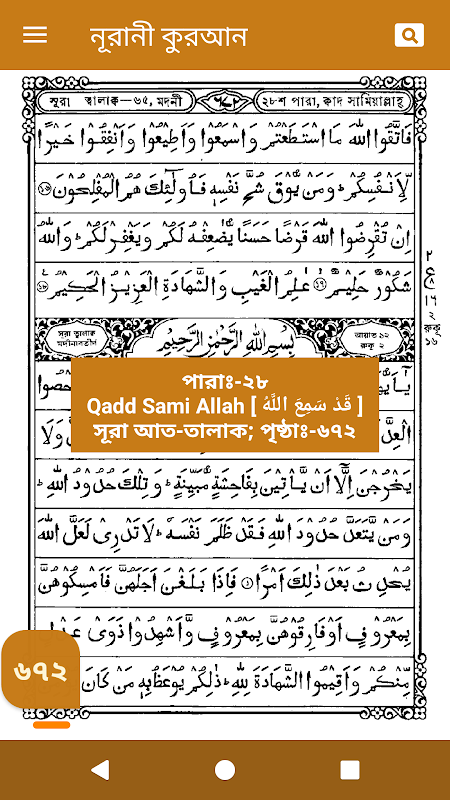 নূরানী কুরআন
সূরা ত্বালাক্ব—৬৫, মদনী
৬৭২
২৮শ পারা, ক্বাদ সামিয়াল্লাহু
فَاتَّقُوا اللّٰهَ مَا اسْتَطَعْتُمْ وَاسْمَعُوْا وَاَطِيْعُوْا وَاَنْفِقُوْا خَيْرًا
لِّاَنْفُسِكُمْ ؕ وَمَنْ يُّوْقَ شُحَّ نَفْسِهٖ فَاُولٰٓئِكَ هُمُ الْمُفْلِحُوْنَ ﴿۱۶﴾
اِنْ تُقْرِضُوا اللّٰهَ قَرْضًا حَسَنًا يُّضٰعِفْهُ لَكُمْ وَيَغْفِرْ لَكُمْ ؕ وَاللّٰهُ
شَكُوْرٌ حَلِيْمٌ ﴿۱۷﴾ عٰلِمُ الْغَيْبِ وَالشَّهَادَةِ الْعَزِيْزُ الْحَكِيْمُ ﴿۱۸﴾
২
ع
১৬
রুকূ
১৬
সূরা ত্বালাক্ব
মদীনাবতীর্ণ
بِسْمِ اللّٰهِ الرَّحْمٰنِ الرَّحِيْمِ
আয়াত ১২
রুকূ ২
পারাঃ-২৮
Qadd Sami Allah [ قَدْ سَمِعَ اللَّهُ ]
সূরা আত-তালাক; পৃষ্ঠাঃ-৬৭২
يَخْرُجْنَ اِلَّاۤ اَنْ يَّاْتِيْنَ بِفَاحِشَةٍ مُّبَيِّنَةٍ ؕ وَتِلْكَ حُدُوْدُ اللّٰهِ ؕ
وَمَنْ يَّتَعَدَّ حُدُوْدَ اللّٰهِ فَقَدْ ظَلَمَ نَفْسَهٗ ؕ لَا تَدْرِىْ لَعَلَّ اللّٰهَ
يُحْدِثُ بَعْدَ ذٰلِكَ اَمْرًا ﴿۱﴾ فَاِذَا بَلَغْنَ اَجَلَهُنَّ فَاَمْسِكُوْهُنَّ
بِمَعْرُوْفٍ اَوْ فَارِقُوْهُنَّ بِمَعْرُوْفٍ وَّاَشْهِدُوْا ذَوَىْ عَدْلٍ
مِّنْكُمْ وَاَقِيْمُوا الشَّهَادَةَ لِلّٰهِ ؕ ذٰلِكُمْ يُوْعَظُ بِهٖ مَنْ كَانَ
৬৭২